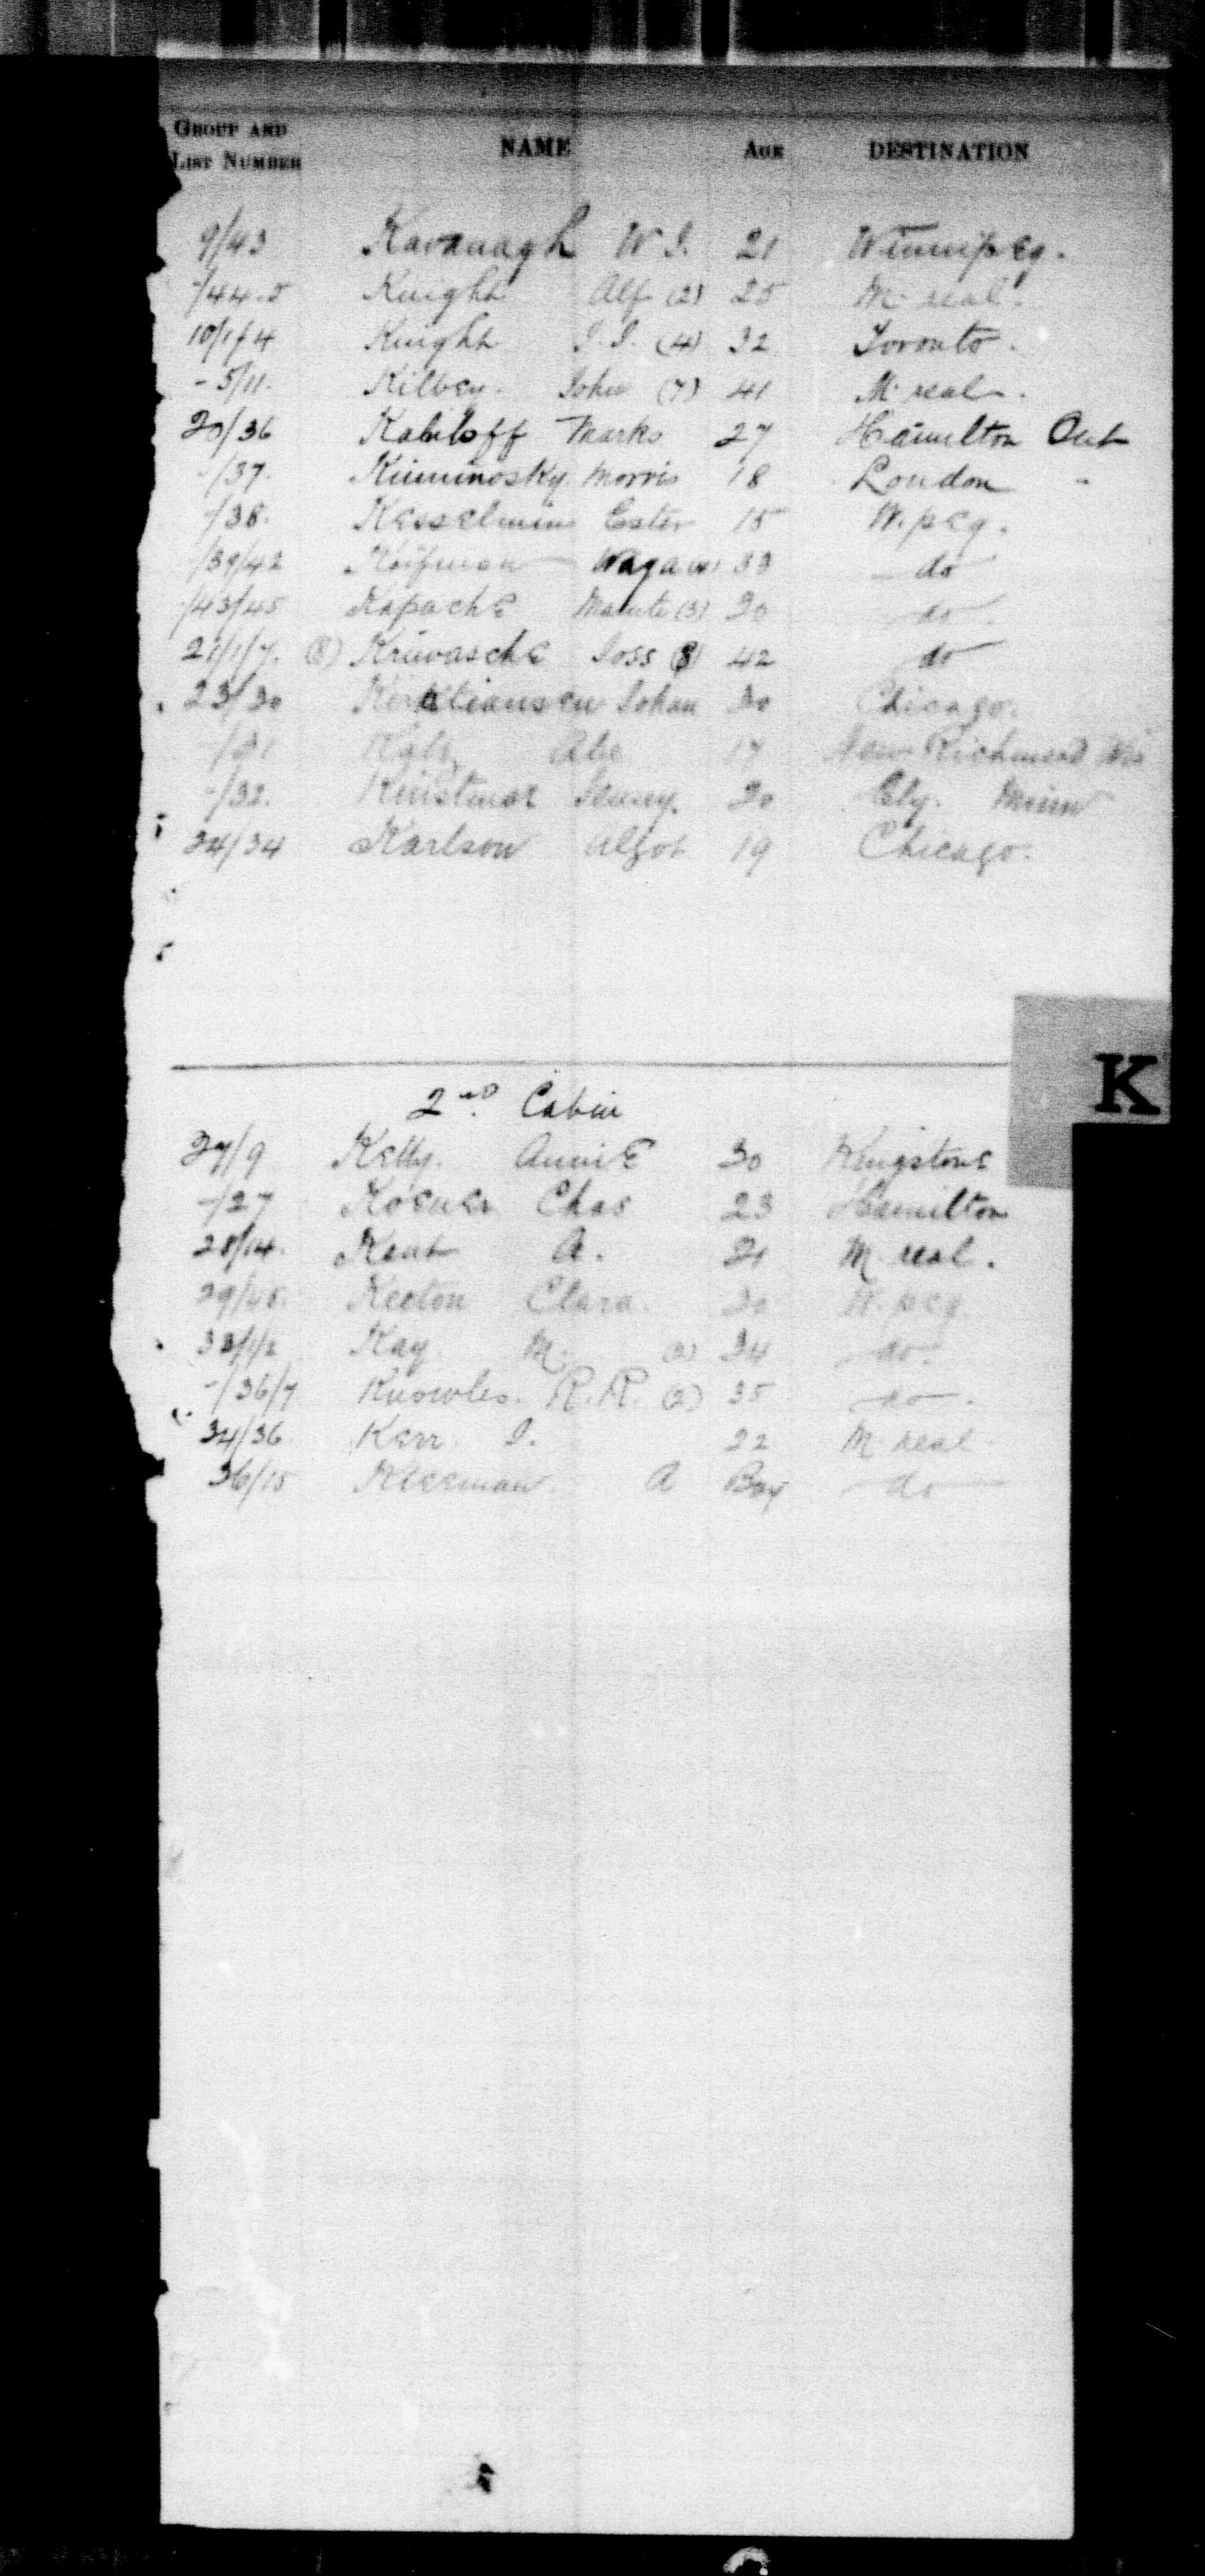 GROUP AND LIST NUMBER NAME AGE DESTINATION
9/43 Kavanagh W J. 21 Winnipeg.
-/44.5 Knight Alf (2) 25 M. real.
10/1/4 Knight J. J. (4) 32 Toronto.
- 5/11. Kilbey. John (7) 41 M. real.
20/36 Kabiloff Marks 27 Hamilton Ont
-/37. Kiminosky Morris 18 London "
-/38. Kesselmin Ester 15 W. peg.
-/39/42 Koifman 33 do
-/43/45 Kapache (3) 30 do
21/1/7. (8) Kriwasche Joss (8) 42 do
23/30 Johan 30 Chicago.
-/31 Katz Abe 17 New Richmond Wis
-/32. 20 Ely. Minn
24/34 Karlson Algot 19 Chicago.
K
2nd Cabin
27/9 Kelly. Annie 30 Kingstone
-/27 Koener Chas 23 Hamilton
28/14. Kent A. 21 M. real.
29/45. Keeton Clara. 30 W. peg.
33/1/2 Kay M. (2) 34 do.
-/36/7 Knowles. R. R. (2) 35 do.
34/36 Kerr J. 22 M. real
36/15 A Boy do